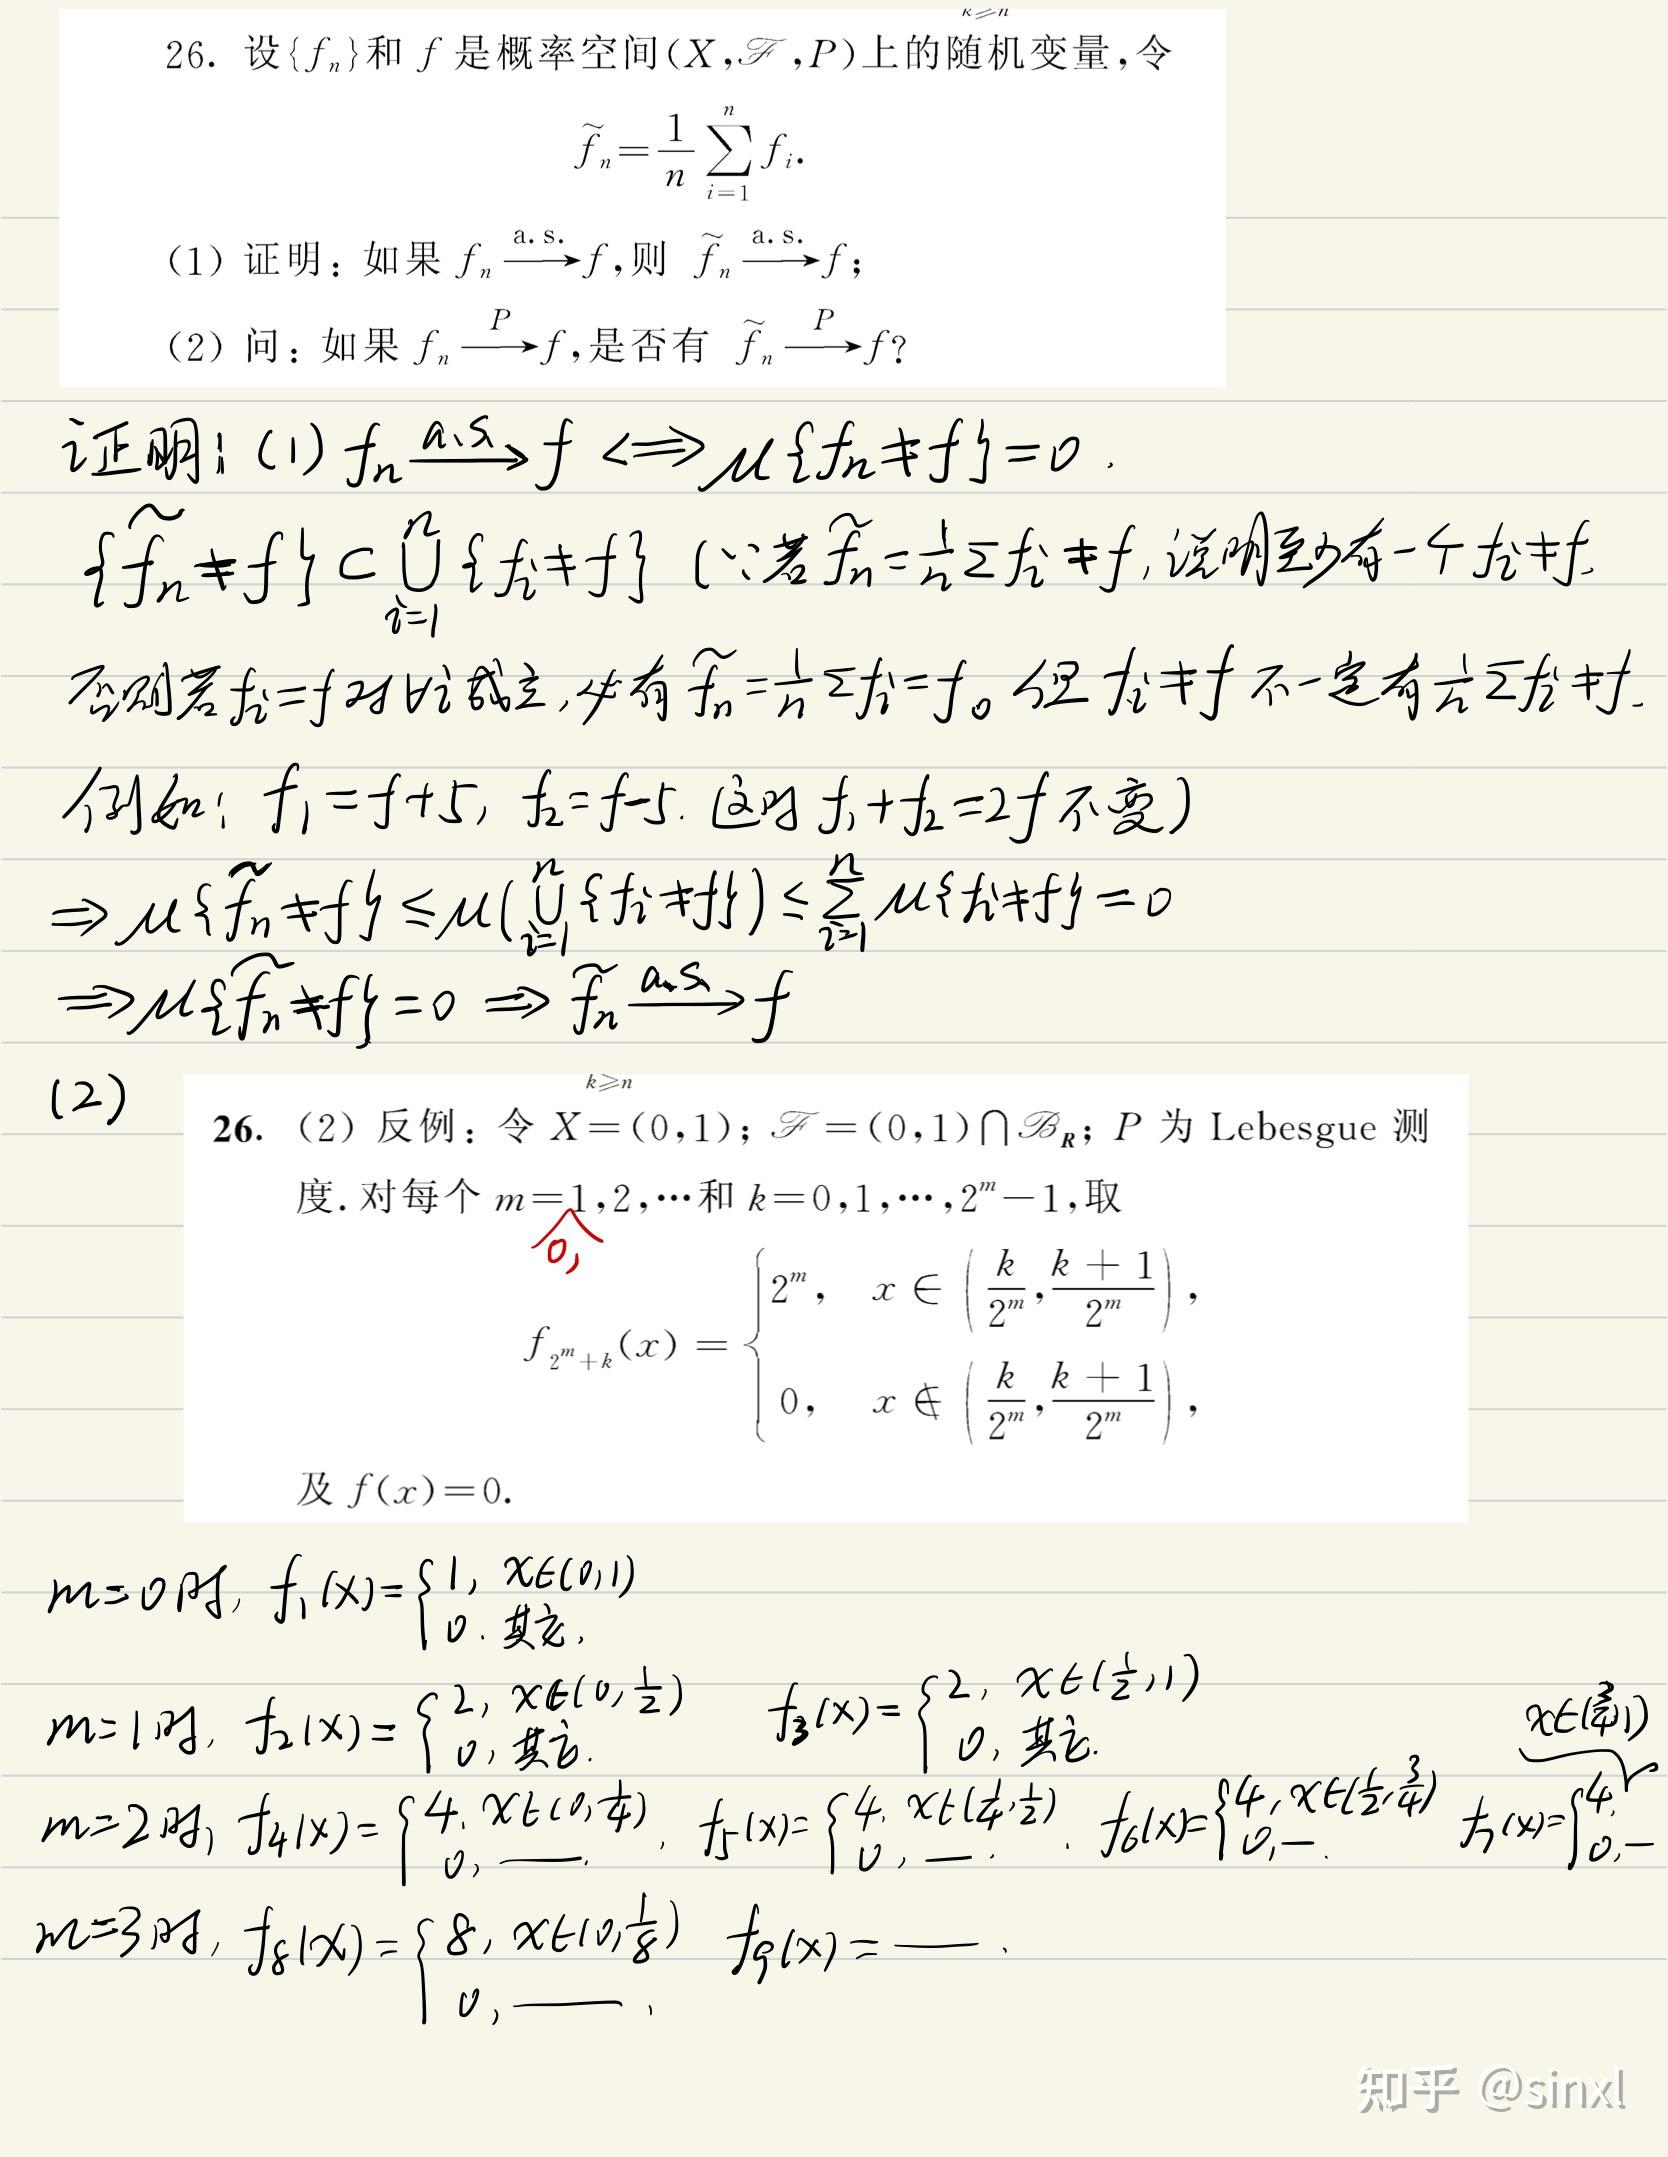 k⩾n
26. 设{fₙ}和 f 是概率空间(X,ℱ,P)上的随机变量,令
f̃ₙ = 1/n ∑_{i=1}^{n} fᵢ.
(1) 证明: 如果 fₙ —a.s.→ f,则 f̃ₙ —a.s.→ f;
(2) 问: 如果 fₙ —P→ f,是否有 f̃ₙ —P→ f?
证明: (1) fₙ —a.s.→ f <=> μ{fₙ ↛ f} = 0.
{f̃ₙ ↛ f} ⊂ ⋃_{i=1}^{n} {fᵢ ↛ f} (∵若 f̃ₙ = 1/n Σfᵢ ↛ f, 说明至少有一个 fᵢ ↛ f.
否则若 fᵢ = f 对∀i成立, 必有 f̃ₙ = 1/n Σfᵢ = f。但 fᵢ ↛ f 不一定有 1/n Σfᵢ ↛ f.
例如: f₁ = f+5, f₂ = f-5. 这时 f₁+f₂ = 2f 不变)
⇒ μ{f̃ₙ ↛ f} ≤ μ(⋃_{i=1}^{n} {fᵢ ↛ f}) ≤ ∑_{i=1}^{n} μ{fᵢ ↛ f} = 0
⇒ μ{f̃ₙ ↛ f} = 0 ⇒ f̃ₙ —a.s.→ f
(2)
k⩾n
26. (2) 反例: 令 X=(0,1); ℱ=(0,1)∩ℬ_R; P 为 Lebesgue 测
度. 对每个 m=1,2,…和 k=0,1,…,2ᵐ-1,取
0,
f_{2^m+k}(x) = { 2ᵐ, x ∈ (k/2ᵐ, (k+1)/2ᵐ),
0, x ∉ (k/2ᵐ, (k+1)/2ᵐ),
及 f(x)=0.
m=0时, f₁(x) = { 1, x∈(0,1)
0. 其它.
m=1时, f₂(x) = { 2, x∈(0,1/2) 0, 其它. f₃(x) = { 2, x∈(1/2,1) 0, 其它.
x∈(3/4,1)
m=2时, f₄(x) = { 4, x∈(0,1/4) 0, — . f₅(x) = { 4, x∈(1/4,1/2) 0, — . f₆(x) = { 4, x∈(1/2,3/4) 0, — . f₇(x) = { 4, 0, —
m=3时, f₈(x) = { 8, x∈(0,1/8) 0, — . f₉(x) = — .
知乎 @sinxl